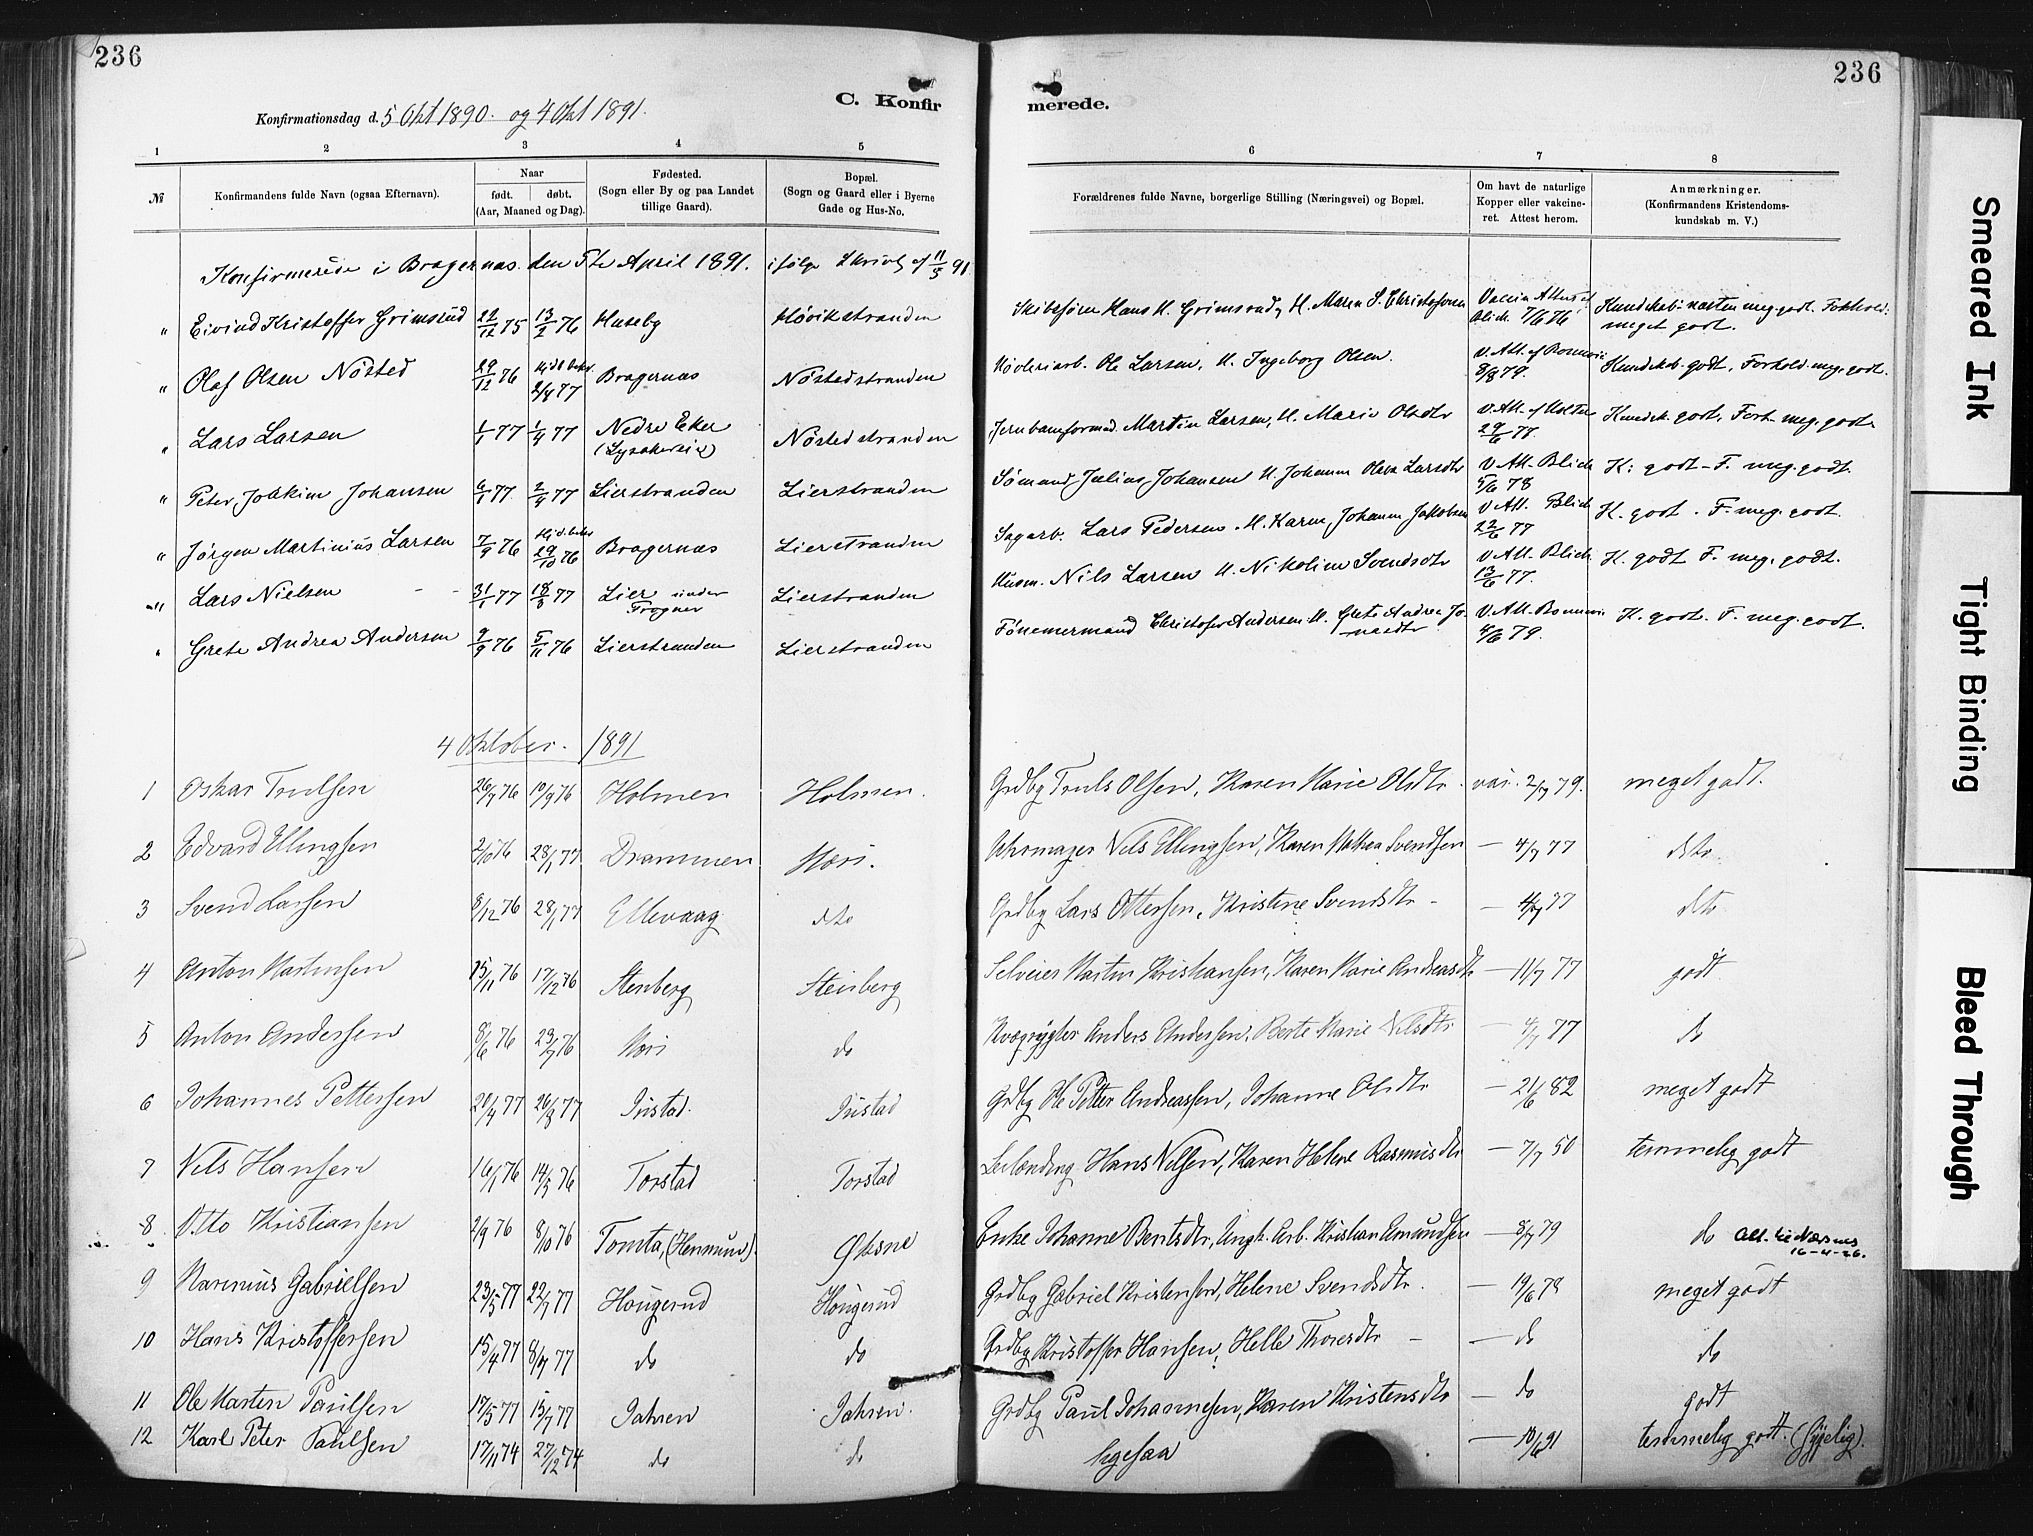 236
236
C. Konfir
merede.
Konfirmationsdag d. 5 Okt 1890. og 4 Okt 1891.
1 2 3 4 5 6 7 8
№
Konfirmandens fulde Navn (ogsaa Efternavn).
Naar
født. døbt.
(Aar, Maaned og Dag).
Fødested.
(Sogn eller By og paa Landet
tillige Gaard).
Bopæl.
(Sogn og Gaard eller i Byerne
Gade og Hus-No.
Forældrenes fulde Navne, borgerlige Stilling (Næringsvei) og Bopæl.
Om havt de naturlige
Kopper eller vakcine-
ret. Attest herom.
Anmærkninger.
(Konfirmandens Kristendoms-
kundskab m. V.)
Konfirmerede i Bragernæs den 5te April 1891. ifølge Skriv af 11/5 91
" Eivind Kristoffer Grimsrud 22/12 75 13/2 76 Huseby Høvikstranden Hans H. Grimsrud, H. Maren S. Christofersen Blich 7/6 76 Kundskab: næsten meg godt. Forhold:
meget godt.
" Olaf Olsen Nøsted 29/12 76 2/4 77 Bragernæs Nøstedstranden Høvleriarb. Ole Larsen, H. Ingeborg Olsen. 8/8 79. Kundskab godt, Forhold meg. godt.
" Lars Larsen 1/1 77 1/4 77 Nedre Eker Nøstedstranden Martin Larsen, H. Marie Olsdtr 29/6 77. Kundsk. godt, Forh. meg. godt.
" Peter Joakim Johansen 6/1 77 2/4 77 Lierstranden Lierstranden Sømand Julius Johansen H. Johanne Olava Larsdtr V. Att. Blich 5/6 78 K: godt - F. meg. godt.
" Jørgen Martinius Larsen 7/9 76 29/10 76 Bragernæs Lierstranden Sagarb. Lars Pedersen H. Karen Johanne Jakobsen V. Att. Blich 22/6 77 K. godt. F. meg. godt.
" Lars Nielsen 31/1 77 18/3 77 Lier under
Frogner Lierstranden Husm. Nils Larsen H. Nikoline Svendsdtr V. Att. Blich 13/6 77. K. godt F. meg. godt.
" Grete Andrea Andersen 9/9 76 5/11 76 Lierstranden Lierstranden Tønemermand Christofer Andersen H. Grete Andrea Jo-
nasdtr 4/6 79. K. godt. F. meg. godt.
4 Oktober. 1891
1 Oskar Trulsen 26/7 76 10/9 76 Holmen Holmen. Grdbg Truls Olsen, Karen Marie Olsdtr. 2/7 79. meget godt.
2 Edvard Ellingsen 2/10 76 28/1 77 Drammen Høri. Uhrmager Nils Ellingsen, Karen Mathea Svendsen — 4/7 77 dto
3 Svend Larsen 8/12 76 28/1 77 Ellevaag dto Grdbg Lars Ottersen, Kristine Svendsdtr — 4/7 77 dto
4 Anton Martinsen 15/11 76 17/12 76 Stenberg Steinberg Selveier Martin Kristiansen, Karen Marie Andreasdtr — 11/7 77 godt
5 Anton Andersen 8/6 76 23/7 76 Høri do Kvægrygter Anders Andersen, Berte Marie Nilsdtr — 4/7 77 do
6 Johannes Pettersen 20/4 77 26/8 77 Justad. Justad Grdbg Ole Petter Andreassen, Johanne Olsdtr — 21/6 82 meget godt
7 Nils Hansen 16/1 76 14/5 76 Torstad Torstad Leilænding Hans Nilsen, Karen Helene Rasmusdtr — 7/7 50 temmelig godt
8 Otto Kristiansen 2/9 76 8/10 76 Tomta, (Hennum) Øksne Enke Johanne Berntsdtr, Ungk. Arb. Kristian Amundsen — 8/7 79 do Att. 16-4-26.
9 Narenius Gabrielsen 23/5 77 22/7 77 Hougerud Hougerud Grdbg Gabriel Kristensen, Helene Svendsdtr. — 19/6 78 meget godt
10 Hans Kristoffersen 15/4 77 8/7 77 do do Grdbg Kristoffer Hansen, Helle Thoresdtr — do do
11 Ole Martin Paulsen 17/5 77 15/7 77 Jahren Jahren. Grdbg Paul Johannesen, Karen Kristensdtr — do godt
12 Karl Peter Paulsen 17/11 74 27/12 74 do do ligesaa — 10/6 91 temmelig godt.
Smeared Ink
Tight Binding
Bleed Through